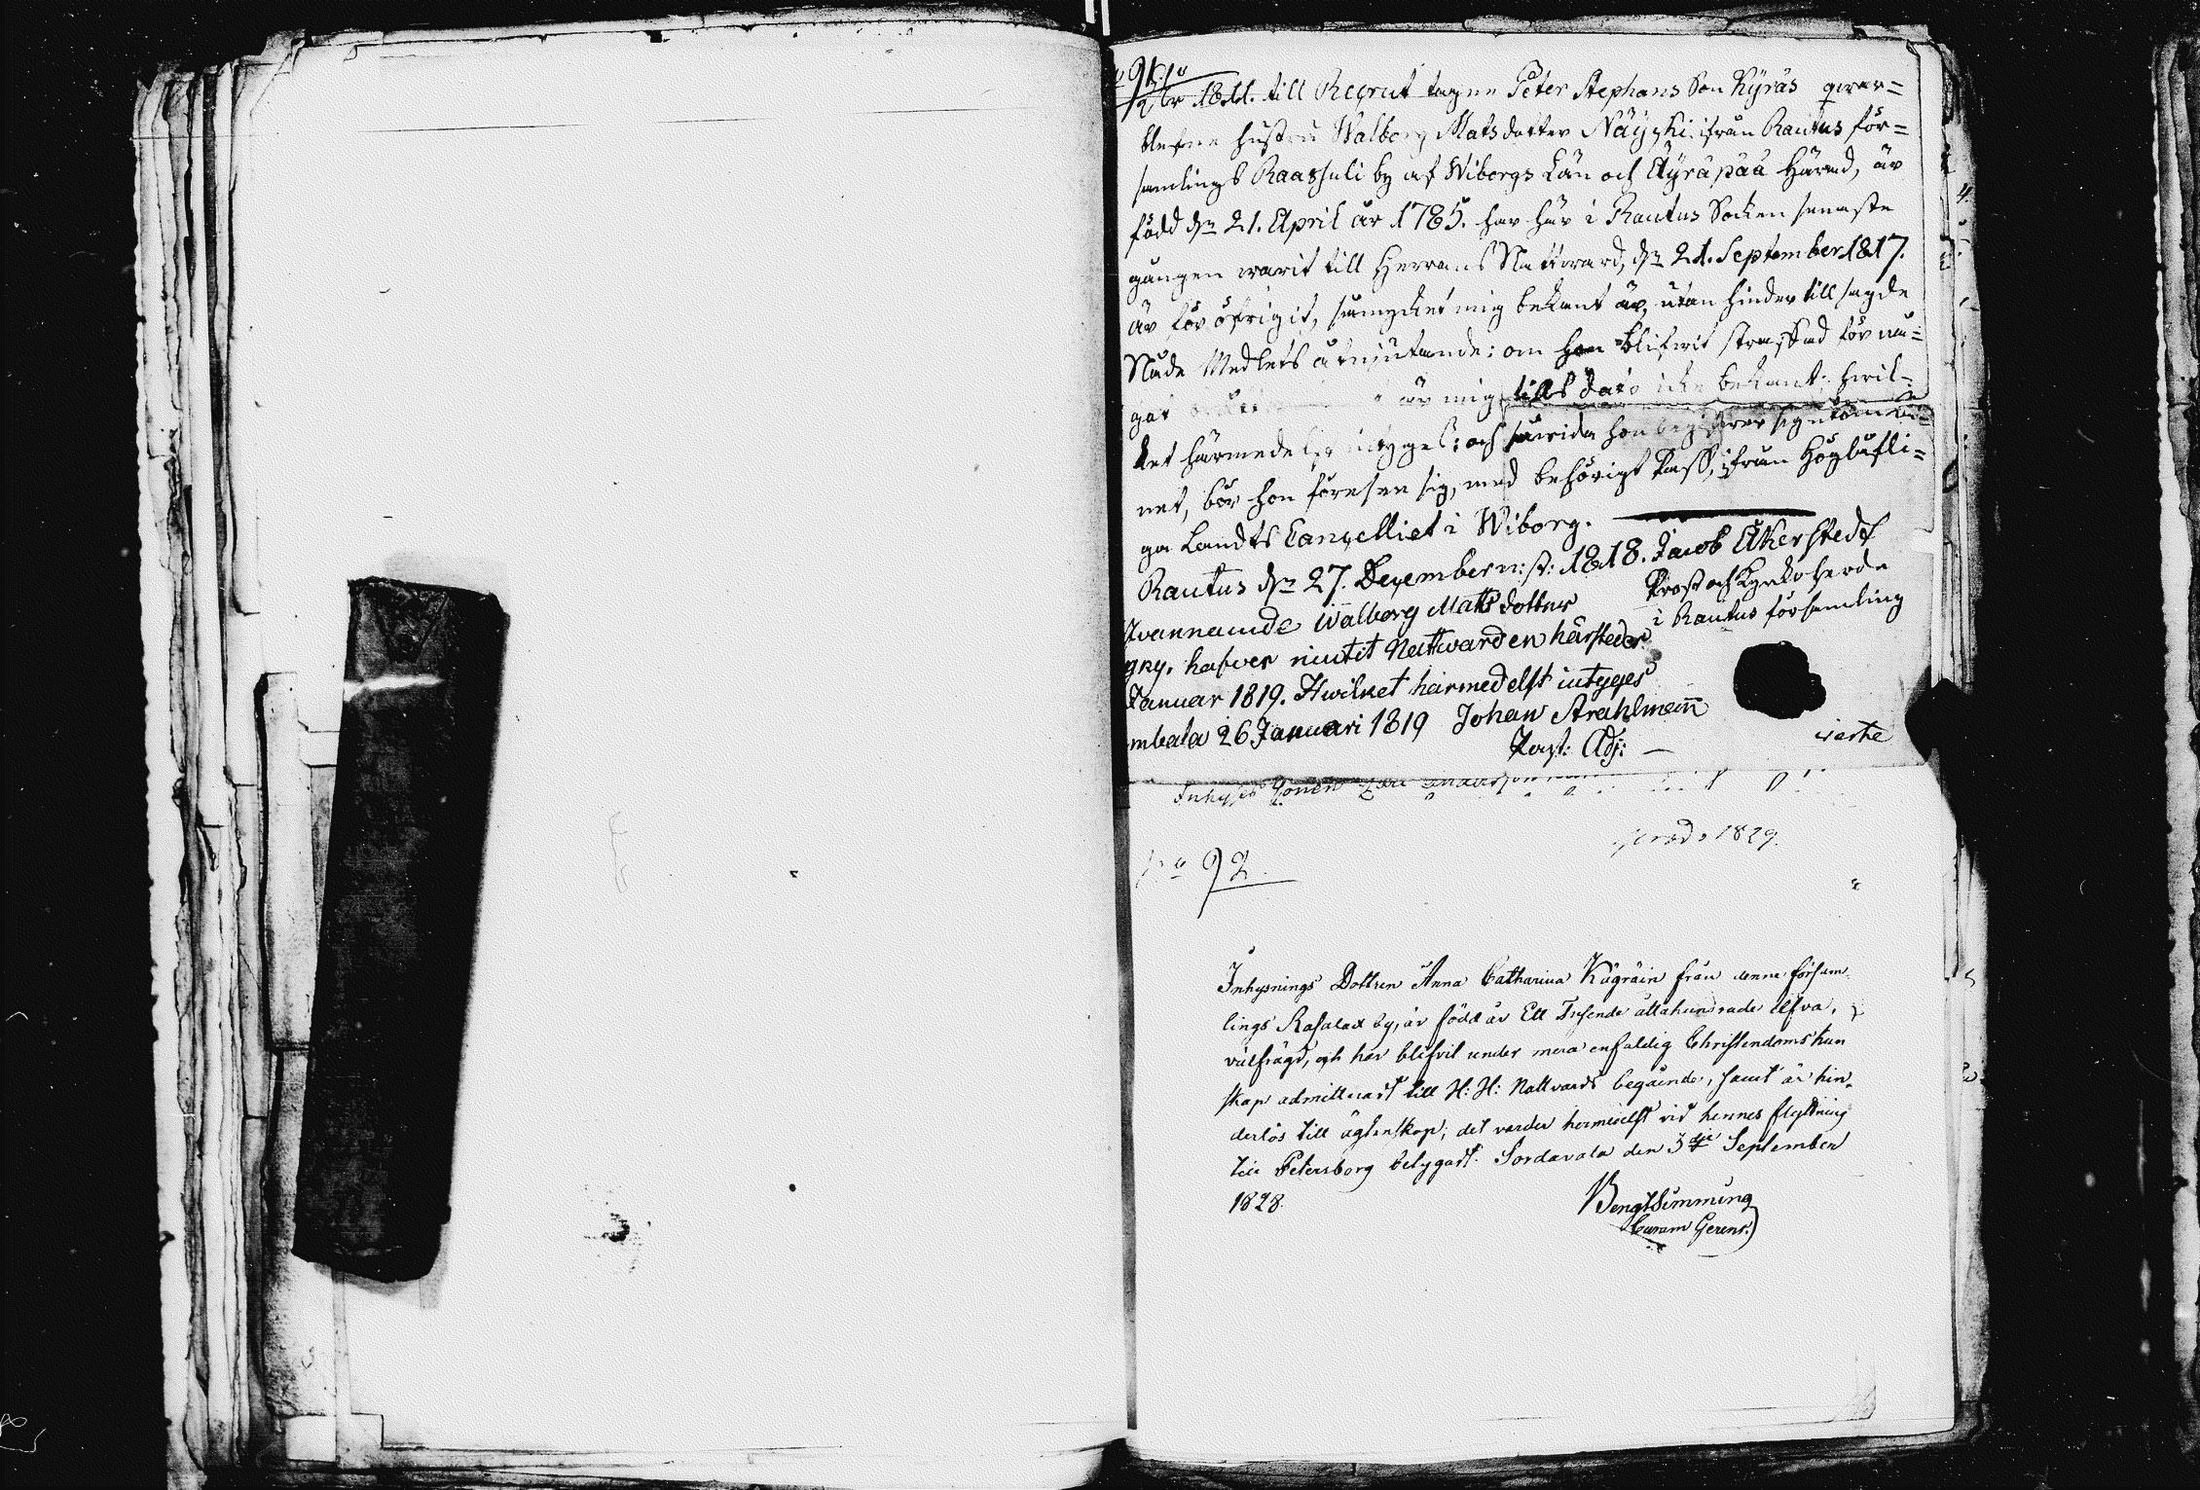 91.
år 1811. till Recrut tagne Peter Stephans Son Kÿräs qwar=
blefne hustru Walborg Matsdotter Näÿcki ifrån Rautus för=
samlings Raassuli by af Wiborgs Län och Äÿräpää Härad, är
född den 21. April år 1785. har här i Rautus Socken senaste
gången warit till Herrans Nattward, den 21. September 1817.
är för öfrigit, såmycket mig bekant är, utan hinder till sagde
Nåde Medlets åtniutande: om hon blifwit straffad för nå=
got är mig tills dato icke bekant; hwil=
ket härmedelst intygas: och såwida hon begifwer sig
net, bör hon förese sig, med behörigt Pass, ifrån Höglofli=
ga Landts Cancelliet i Wiborg.
Rautus den 27. December n: st: 1818. Jacob Åkerstedt
Prost och Kyrkoherde
i Rautus församling
Fvannamde Walborg Matts dotter
hafver niutit Nattwarden härstedes
Januar 1819. Hwilket härmedelst intyges
mbala 26 Januari 1819 Johan Strahlmann
Past: Adj: —
Inhyses
1829.
No 92.
Inhysnings Dottren Anna Catharina Kägräin från denne försam
lings Rasalax by, är född år Ett Tusende åttahundrade Elfva,
välfrägd, och har blifvit under mera enfaldig Christendoms kun
skap admitterad till H: H: Nattvards begående, samt är hin
derlös till ägtenskap; det varder hermedelst vid hennes flyttning
till Petersborg betygadt. Sordavala den 3dje September
1828. Bengt Simming
Curam Gerens.